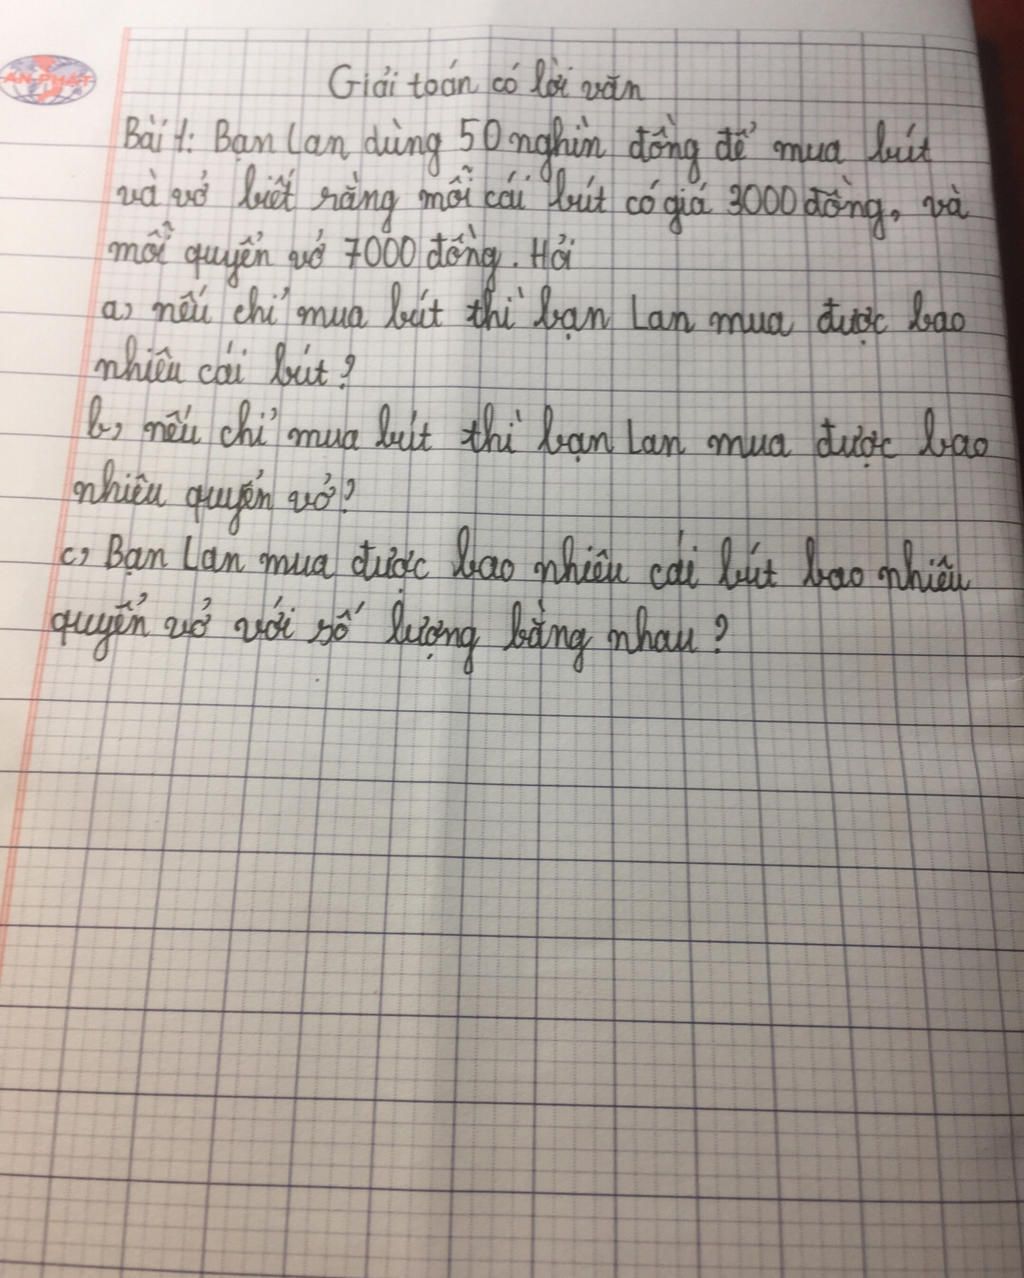 AN PHÁT
Giải toán có lời văn
Bài 1: Bạn Lan dùng 50 nghìn đồng để mua bút
và vở biết rằng mỗi cái bút có giá 3000 đồng, và
mỗi quyển vở 7000 đồng. Hỏi
a, nếu chỉ mua bút thì bạn Lan mua được bao
nhiêu cái bút?
b, nếu chỉ mua bút thì bạn Lan mua được bao
nhiêu quyển vở?
c, Bạn Lan mua được bao nhiêu cái bút bao nhiêu
quyển vở với số lượng bằng nhau?